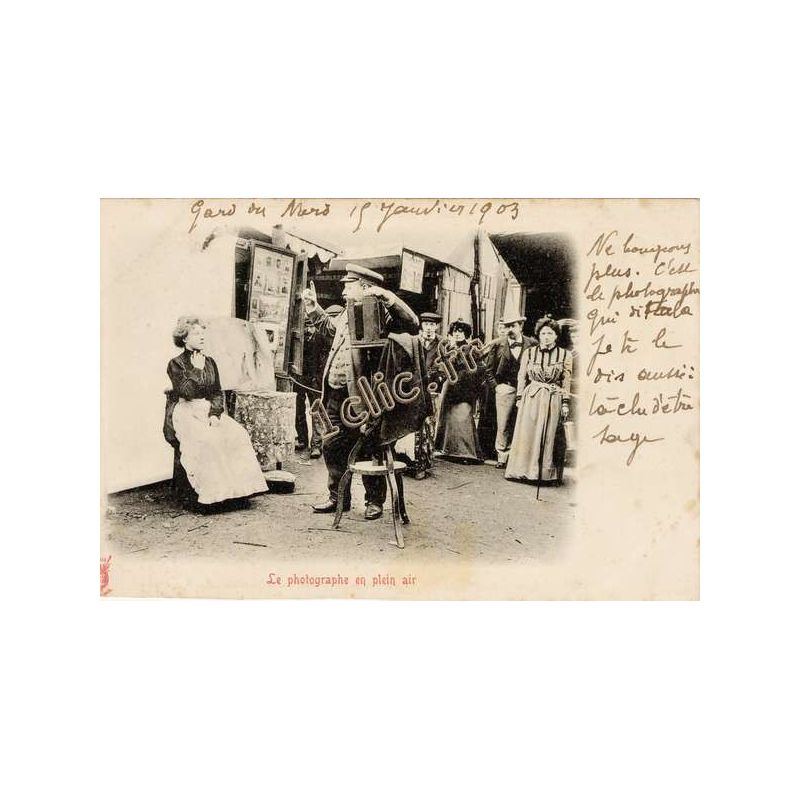 Gard du Nord 15 Janvier 1903
Ne bougeons
plus. C'est
le photographe
qui dit cela
je te le
dis aussi:
tâche d'être
sage
1clic.fr
Le photographe en plein air